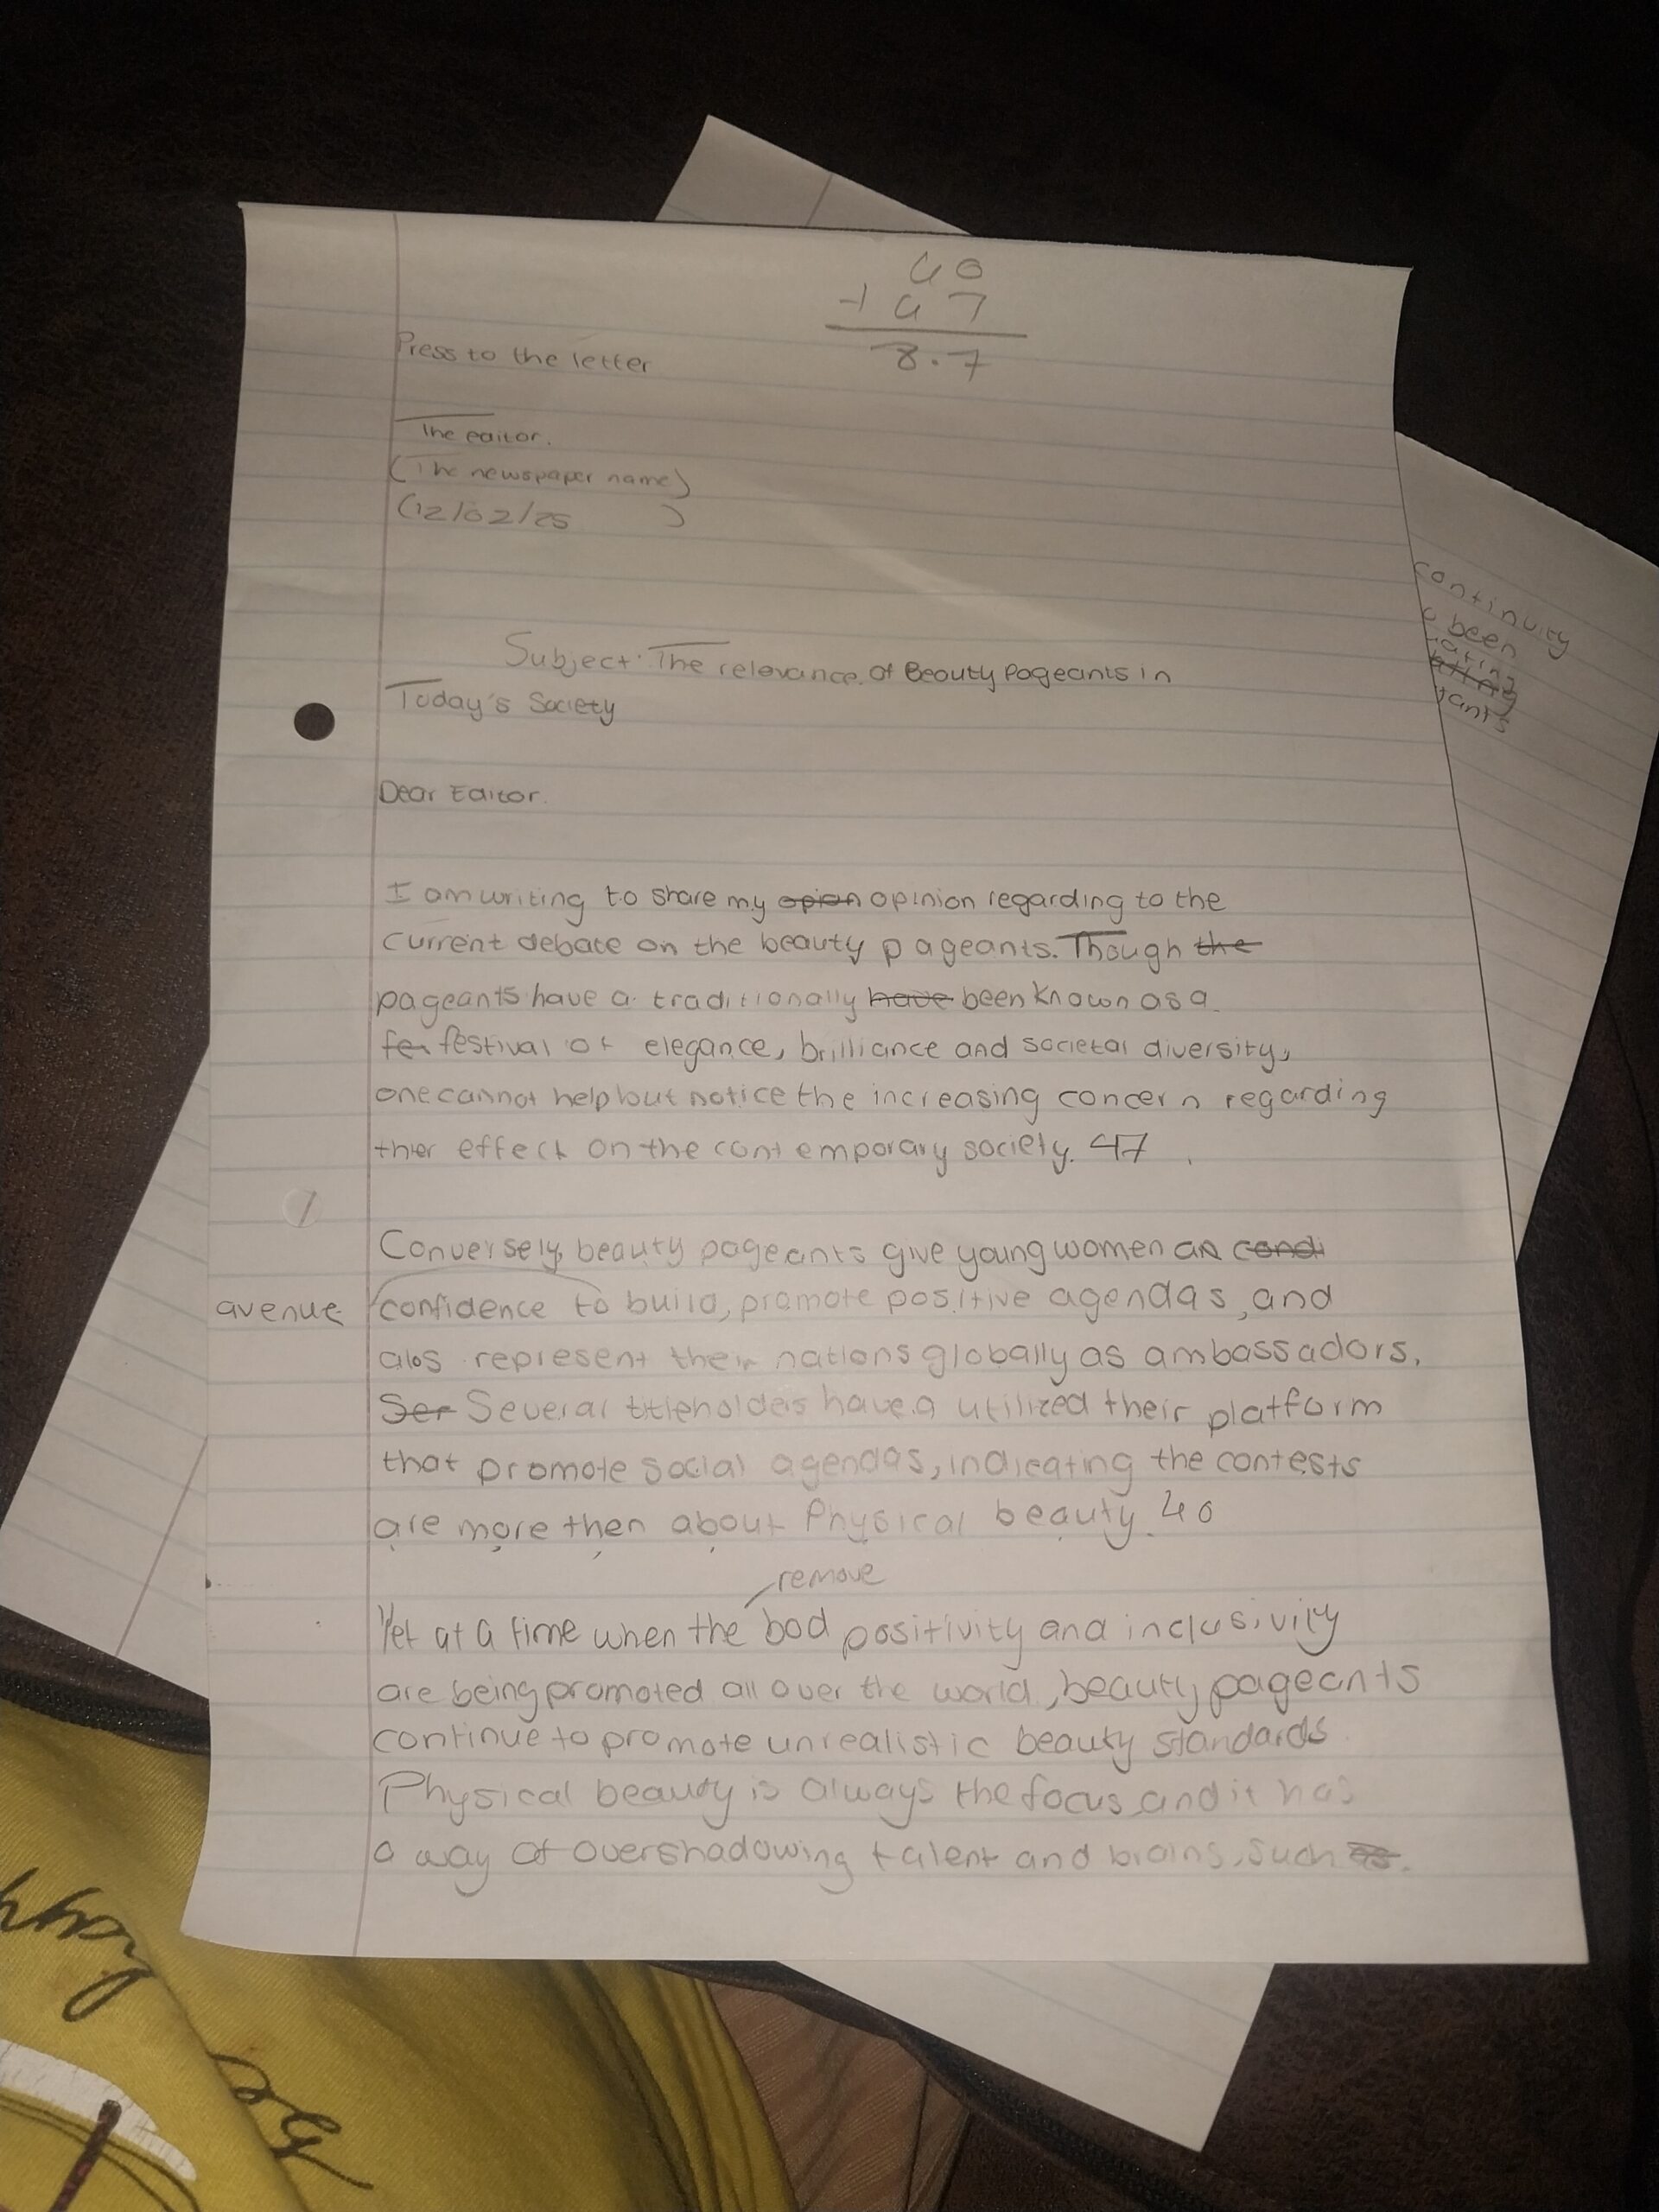 40
+ 47
8.7
Press to the letter
The editor.
(The newspaper name)
(12/02/25 )
Subject: The relevance of Beauty Pageants in
Today's Society
Dear Editor.
I am writing to share my opion opinion regarding to the
current debate on the beauty pageants. Though the
pageants have a traditionally have been known as a
fer festival of elegance, brilliance and societal diversity,
one cannot help but notice the increasing concern regarding
thier effect on the contemporary society. 47
Conversely, beauty pageants give young women an condi
avenue confidence to build, promote positive agendas, and
alos represent their nations globally as ambassadors.
Ser Several titleholders have a utilized their platform
that promote social agendas, indicating the contests
are more then about Physical beauty. 40
remove
Yet at a time when the bod positivity and inclusivity
are being promoted all over the world, beauty pageants
continue to promote unrealistic beauty standards.
Physical beauty is always the focus and it has
a way of overshadowing talent and brains. Such as.
continuity
been